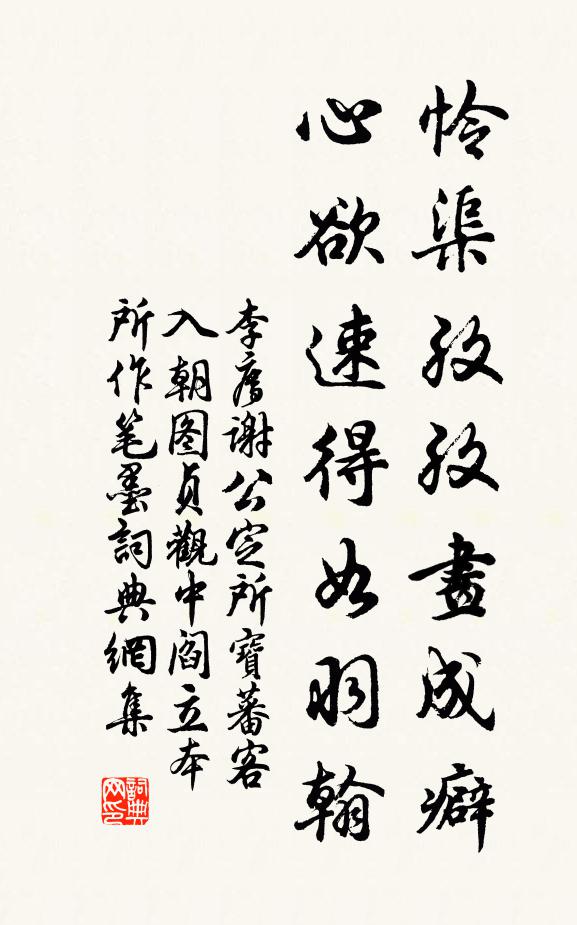 怜渠孜孜畫成癖
心欲速得如羽翰
李廌謝公定所寶蕃客
入朝图貞觀中阎立本
所作笔墨詞典網集
詞典网印